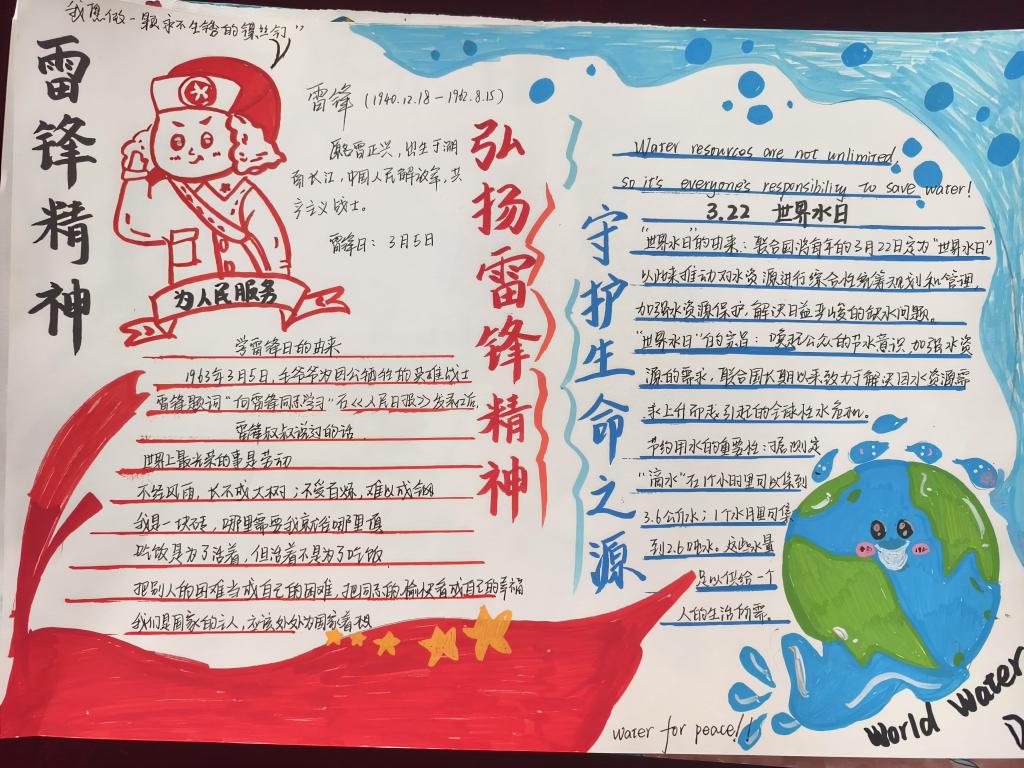 我想做一颗永不生锈的镙丝钉”
雷锋精神
雷锋 (1940.12.18-1962.8.15)
原名雷正兴，出生于湖
南长江，中国人民解放军，共
产主义战士。
雷锋日：3月5日
为人民服务
学雷锋日的由来
1963年3月5日，毛爷爷为因公牺牲的英雄战士
雷锋题词“向雷锋同志学习”在《《人民日报》》发表
雷锋叔叔说过的话
世界上最光荣的事是劳动
不经风雨，长不成大树；不受百炼，难以成钢
我是一块砖，哪里需要我就往哪里
吃饭是为了活着，但活着不是为了吃饭
把别人的困难当成自己的困难，把同志的愉快看成自己的幸福
我们是国家的主人，应该处处为国家着想
弘扬雷锋精神
守护生命之源
Water resources are not unlimited,
so it's everyone's responsibility to save water!
3.22 世界水日
“世界水日”的由来：联合国将每年的3月22日定为“世界水日”
以此来推动对水资源进行综合性统筹规划和管理，
加强水资源保护，解决日益严峻的缺水问题。
“世界水日”的宗旨：唤起公众的节水意识，加强水资
源的需求，联合国长期以来致力于解决因水资源需
求上升而引起的全球性水危机。
节约用水的重要性：据测定
“滴水”在1个小时里可以集到
3.6公斤水；1个水月里可集
到2.6吨水，这些水量
足以供给一个
人的生活所需。
water for peace!!
World Water
D